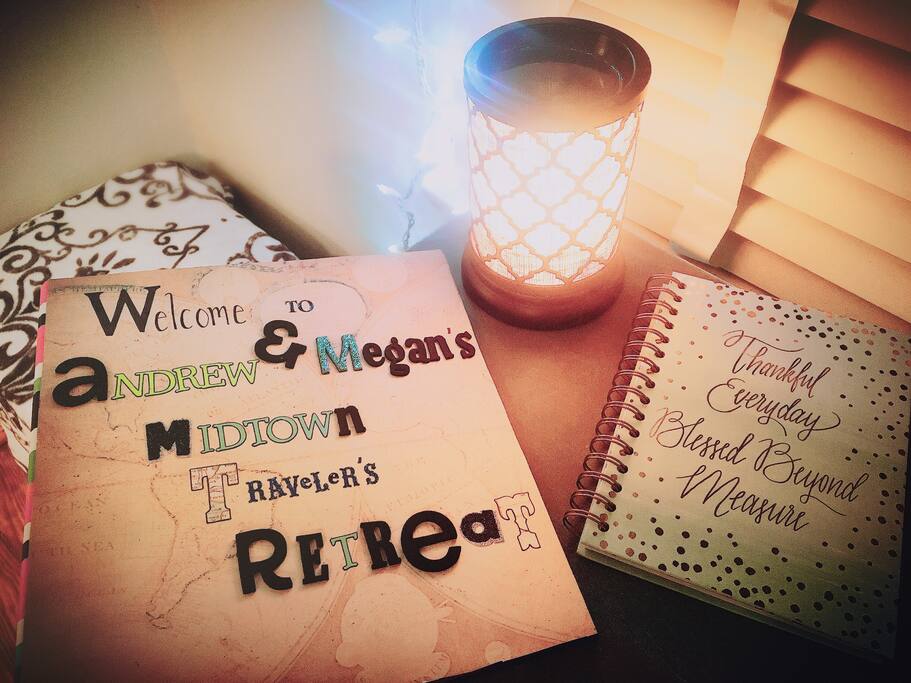 Welcome to
aNDREW & Megan's
MIDTOWn
TRAVeLeR'S
RETReaT
Thankful
Everyday
Blessed Beyond
Measure